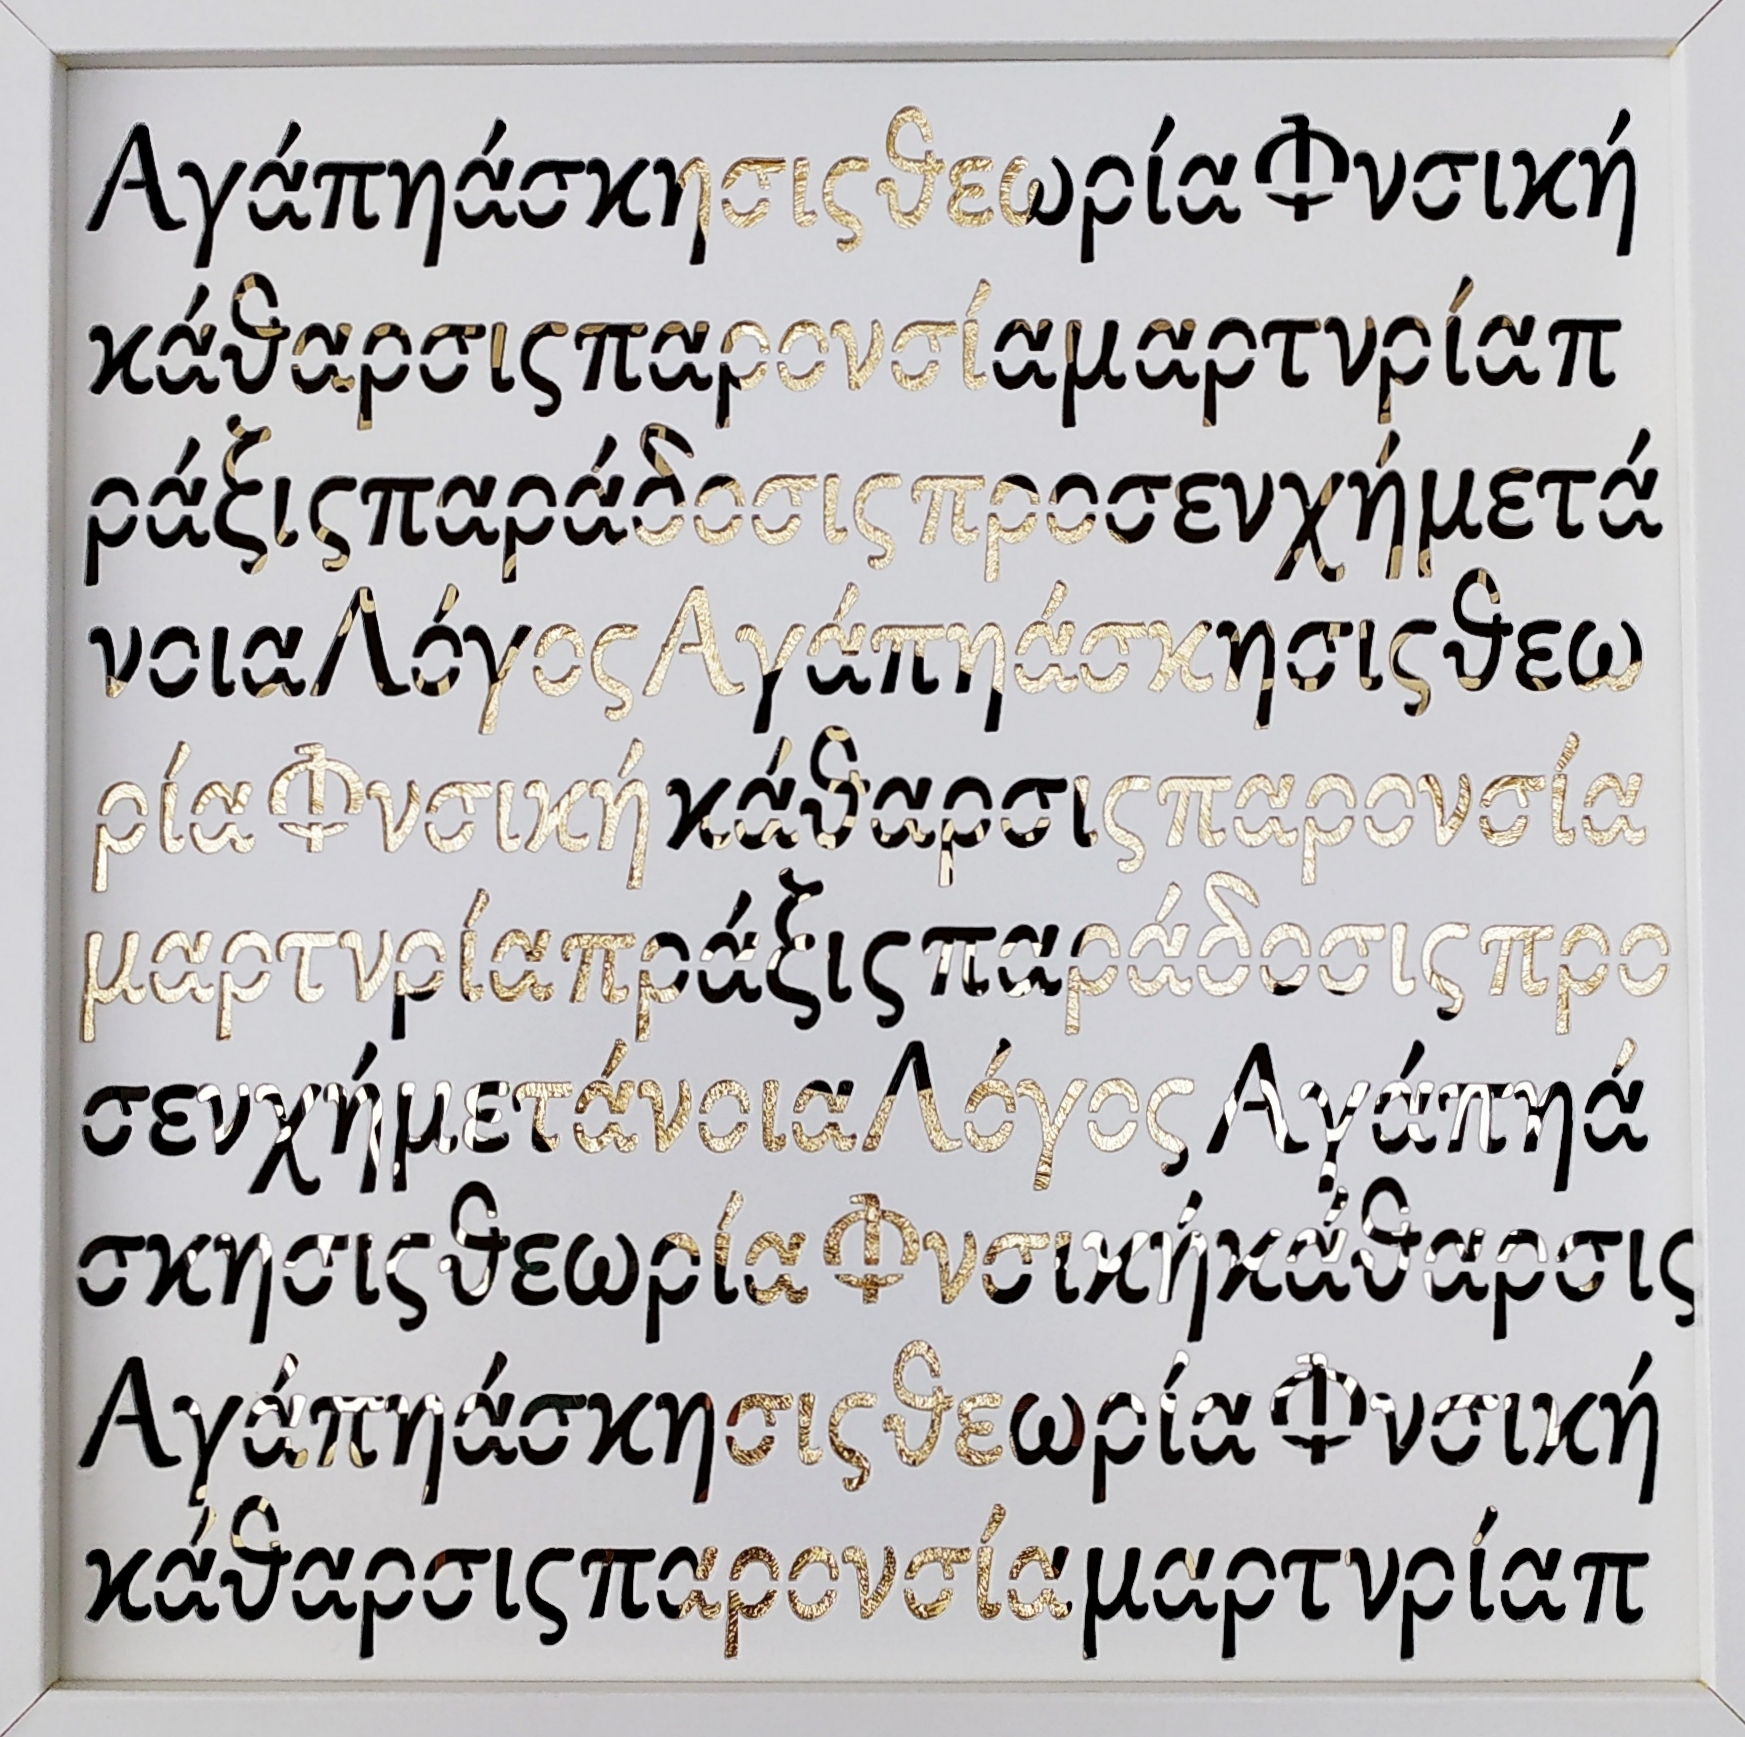 Αγάπηάσκησιςθεωρία Φυσική
κάθαρσιςπαρουσίαμαρτυρίαπ
ράξιςπαράδοσιςπροσευχήμετά
νοιαΛόγοςΑγάπηάσκησιςθεω
ρία Φυσική κάθαρσιςπαρουσία
μαρτυρίαπράξιςπαράδοσιςπρο
σευχήμετάνοιαΛόγος Αγάπηά
σκησιςθεωρία Φυσικήκάθαρσις
Αγάπηάσκησιςθεωρία Φυσική
κάθαρσιςπαρουσίαμαρτυρίαπ